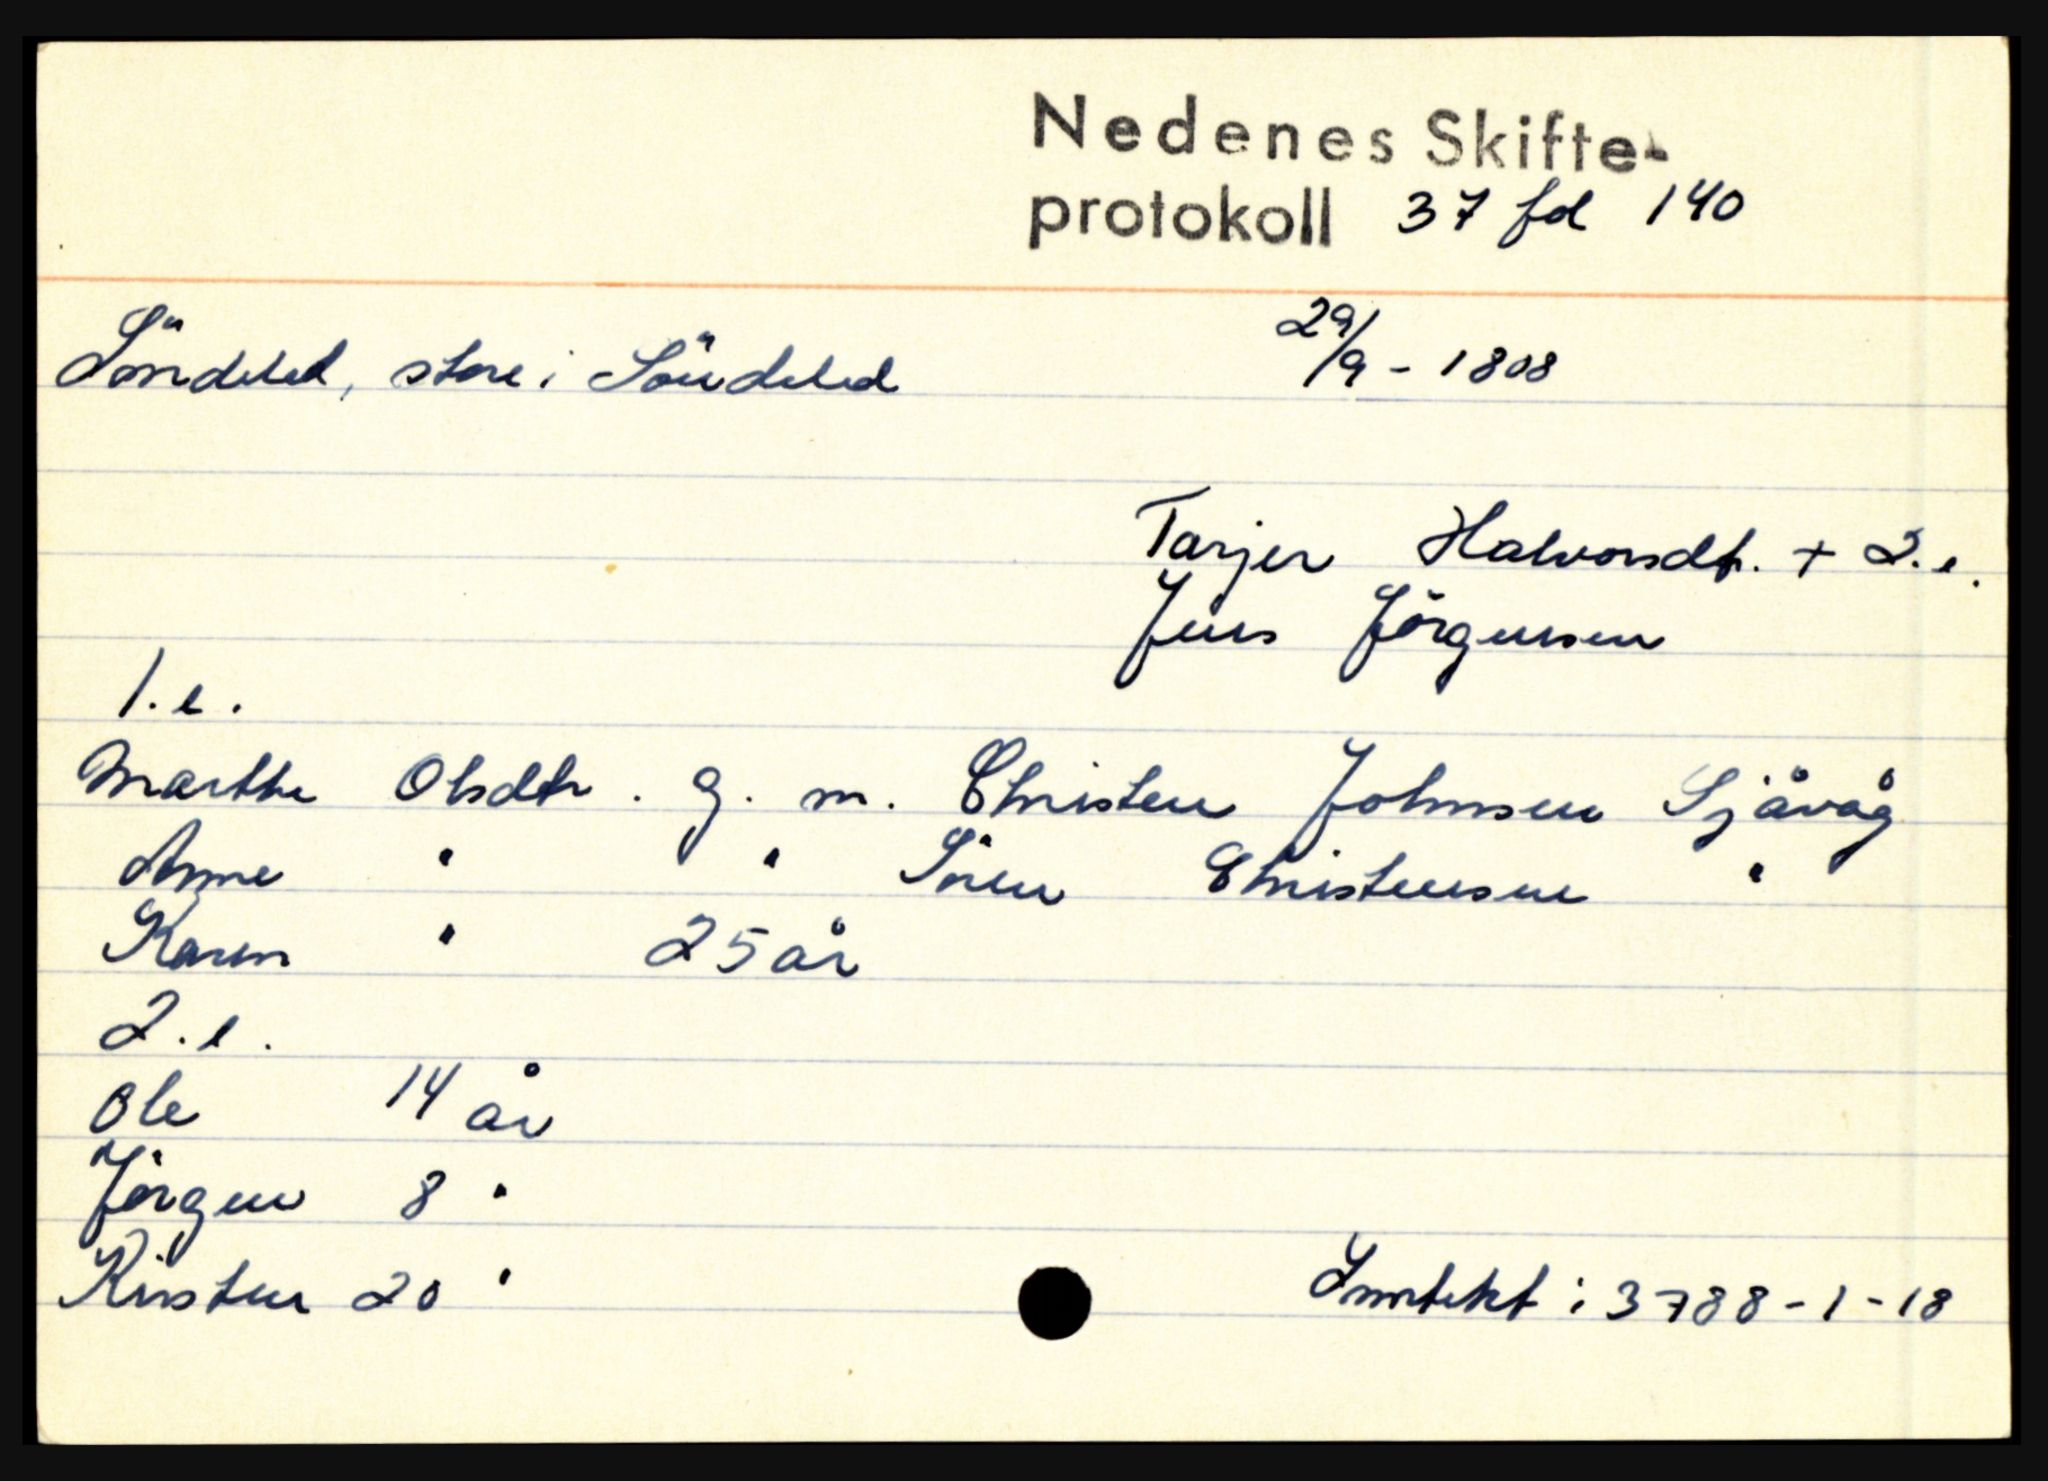 Nedenes Skifte-
protokoll 37 fol 140
Söndeled, store i Söndeled 29/9 - 1808
Tarjer Halvorsdt. + 2. e.
Jens Jörgensen
1. e.
Marthe Olsdtr. g. m. Christen Johnsen Sjåvåg
Anne " " Sören Christensen "
Karen " 25 år
2. e.
Ole 14 år
Jörgen 8 "
Kirsten 20 " Inntekt i 3788-1-18